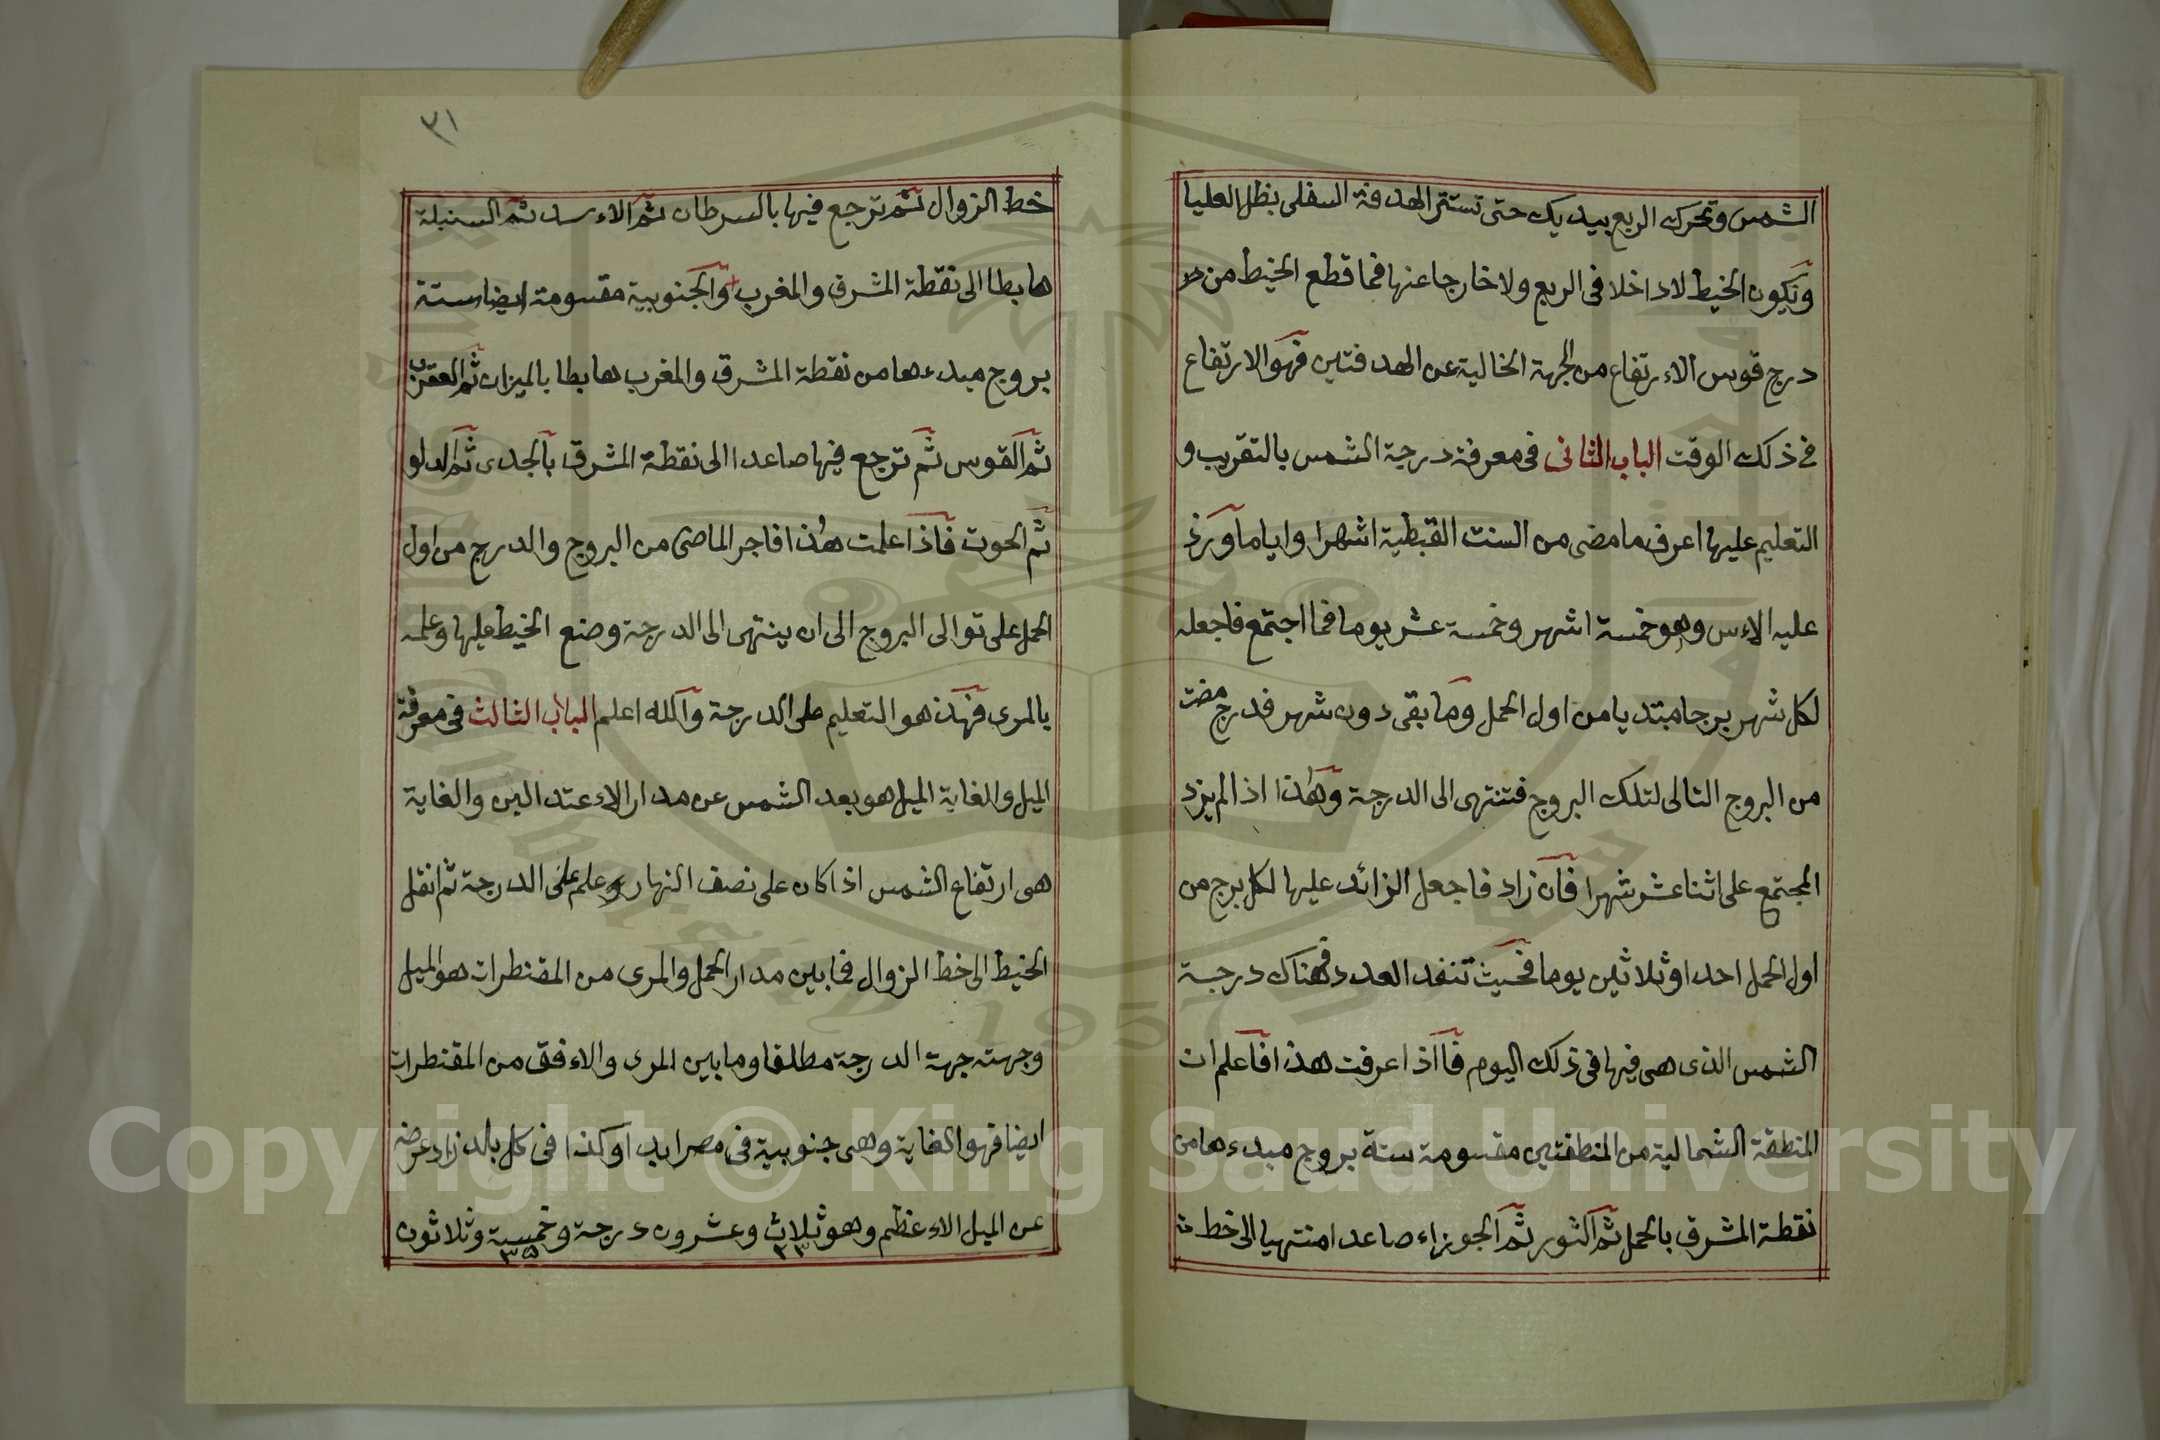 الشمس وتحرك الربع بيديك حتى تستتر الهدفة السفلى بظل العليا
ويكون الخيط لا داخلا في الربع ولا خارجا عنها فما قطع الخيط من
درج قوس الاءرتفاع من الجهة الخالية عن الهدفتين فهو الارتفاع
في ذلك الوقت الباب الثانى فى معرفة درجة الشمس بالتقريب و
التعليم عليها اعرف ما مضى من السنت القبطية اشهرا واياما وزد
عليه الاءس وهو خمسة اشهر وخمسة عشر يوما فما اجتمع فاجعله
لكل شهر برجا مبتديا من اول الحمل وما بقى دون شهر فدرج مضت
من البروج التالى لتلك البروج فتنتهى الى الدرجة وهذا اذا لم يزد
المجتمع على اثنا عشر شهرا فان زاد فاجعل الزائد عليها لكل برج من
اول الحمل احدا وثلاثين يوما فحيث تنفد العدد فهناك درجة
الشمس الذى هى فيها فى ذلك اليوم فااذا عرفت هذا فاعلم ان
المنطقة الشمالية من المنطقتين مقسومة ستة بروج مبدءها من
نقطة المشرق بالحمل ثم الثور ثم الجوزاء صاعدا منتهيا الى خط
٣١
خط الزوال ثم ترجع فيها بالسرطان ثم الاءسد ثم السنبلة
هابطا الى نقطة المشرق والمغرب والجنوبية مقسومة ايضا ستة
بروج مبدءها من نقطة المشرق والمغرب هابطا بالميزان ثم العقرب
ثم القوس ثم ترجع فيها صاعدا الى نقطة المشرق بالجدى ثم الدلو
ثم الحوت فاذا علمت هذا فاجر الماضى من البروج والدرج من اول
الحمل على توالى البروج الى ان ينتهى الى الدرجة وضع الخيط عليها وعلمه
بالمرى فهذ هو التعليم على الدرجة والله اعلم الباب الثالث فى معرفة
الميل والغاية الميل هو بعد الشمس عن مدار الاءعتدالين والغاية
هى ارتفاع الشمس اذا كان على نصف النهار وعلم على الدرجة ثم انقل
الخيط الى خط الزوال فما بين مدار الحمل والمرى من المقنطرات هو الميل
وجهته جهة الدرجة مطلقا وما بين المرى والاءفق من المقنطرات
ايضا فهو الغاية وهى جنوبية فى مصر ابدا وكذا فى كل بلد زاد عرضه
عن الميل الاءعظم وهو ثلاث وعشرون درجة وخمسة وثلاثون
٢٣ ٣٥
Copyright © King Saud University
1957